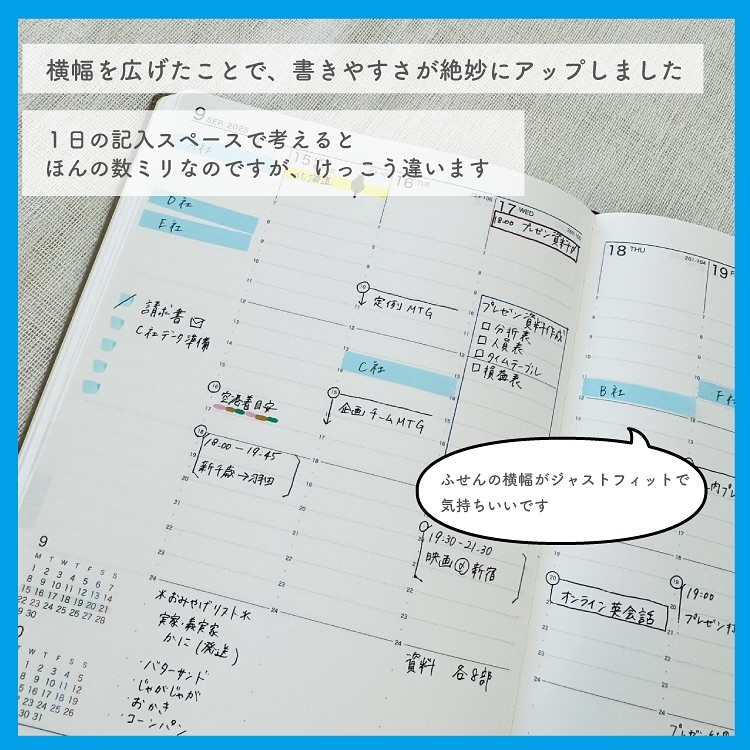 横幅を広げたことで、書きやすさが絶妙にアップしました
１日の記入スペースで考えると
ほんの数ミリなのですが、けっこう違います
9 SEP 2025
15
16 TUE
17 WED
18 THU
19
D社
E社
18:00 プレゼン資料〆
請求書
C社データ準備
定例MTG
プレゼン資料作成
分析表
人員表
タイムテーブル
損益表
C社
B社
空港着目安
企画チームMTG
18:00 - 19:45
新千歳→羽田
ふせんの横幅がジャストフィットで
気持ちいいです
19:30-21:30
映画@新宿
オンライン英会話
19:00
9
M T W T F S S
1 2 3 4 5 6 7
8 9 10 11 12 13 14
15 16 17 18 19 20 21
22 23 24 25 26 27 28
29 30
*おみやげリスト*
実家・義実家
かに(発送)
・バターサンド
・じゃがじゃが
・おかき
・コーンパン
資料 各8部